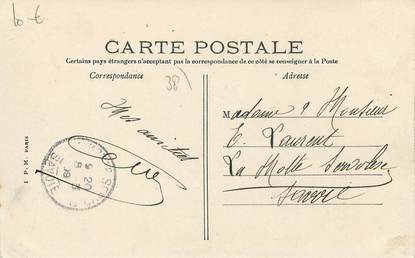 10 €
CARTE POSTALE
Certains pays étrangers n'acceptant pas la correspondance de ce côté se renseigner à la Poste
Correspondance
38)
Adresse
Madame & Monsieur
E. Laurent
La Motte Servolex
Savoie
Mes amitiés
I P M PARIS
SAVOIE